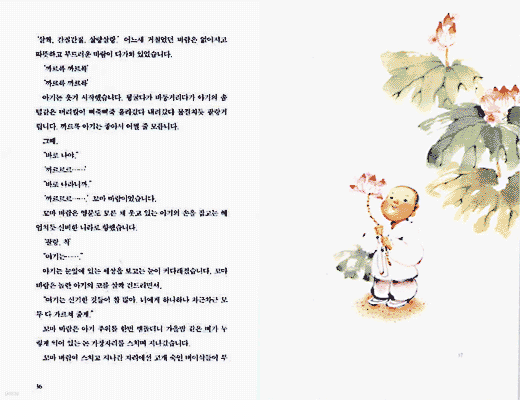 '살짝, 간질간질, 살랑살랑.' 어느새 거칠었던 바람은 없어지고
따뜻하고 부드러운 바람이 다가와 있었습니다.
'까르륵 까르륵'
'까르륵 까르륵'
아기는 웃기 시작했습니다. 뒹굴다가 바둥거리다가 아기의 솜
털같은 머리칼이 삐죽삐죽 올라갔다 내려갔다
립니다. 까르륵 아기는 좋아서 어쩔 줄 모릅니다.
그때,
"바로 나야."
"까르르르……"
"바로 나라니까."
"까르르르……." 꼬마 바람이었습니다.
꼬마 바람은 영문도 모른 채 웃고 있는 아기의 손을 잡고는 헤
엄치듯 신비한 나라로 향했습니다.
'살랑, 착'
"여기는……."
아기는 눈앞에 있는 세상을 보고는 눈이 커다래졌습니다. 꼬마
바람은 놀란 아기의 코를 살짝 건드리면서,
"여기는 신기한 것들이 참 많아. 너에게 하나하나 차근차근 모
두 다 가르쳐 줄게."
꼬마 바람은 아기 주위를 한번 맴돌더니 가을빛 같은 벼가 누
렇게 익어 있는 논 가장자리를 스치며 지나갔습니다.
꼬마 바람이 스치고 지나간 자리에선 고개 숙인 벼이삭들이 부
36
37